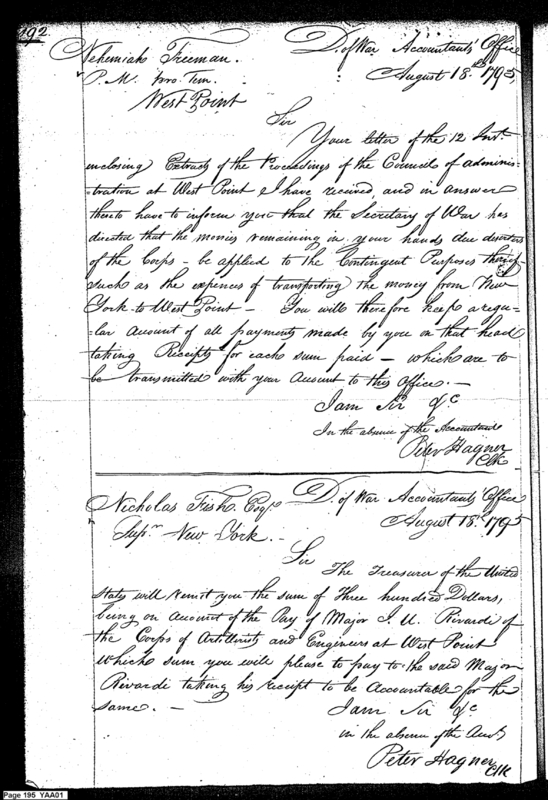 192
Nehemiah Freeman.
D. of War Accountants Office
P. M. Pro. Tem.
August 18th 1795,
West Point
Sir
Your letter of the 12 Inst.
enclosing Extracts of the Proceedings of the Council of adminis-
tration at West Point I have received and in answer
thereto have to inform you that the Secretary of War has
directed that the monies remaining in your hands due deserters
of the Corps - be applied to the Contingent Purposes thereof
such as the expences of transporting the money from New
York to West Point - You will therefore keep a regu-
lar Account of all payments made by you on that head
taking Receipts for each sum paid - which are to
be transmitted with your Account to this Office. -
I am Sir &c
In the absence of the Accountant
Peter Hagner
Clk
Nicholas Fish Esqr.
D. of War Accountants Office
Supr. New York. -
August 18th 1795
Sir
The Treasurer of the United
States will remit you the sum of Three hundred Dollars,
being on account of the Pay of Major I. U. Rivardi of
the Corps of Artillerists and Engineers at West Point
which sum you will please to pay to the said Major
Rivardi taking his receipt to be Accountable for the
same. -
I am Sir &c
in the absence of the Acct.
Peter Hagner
Clk
Page 195 YAA01